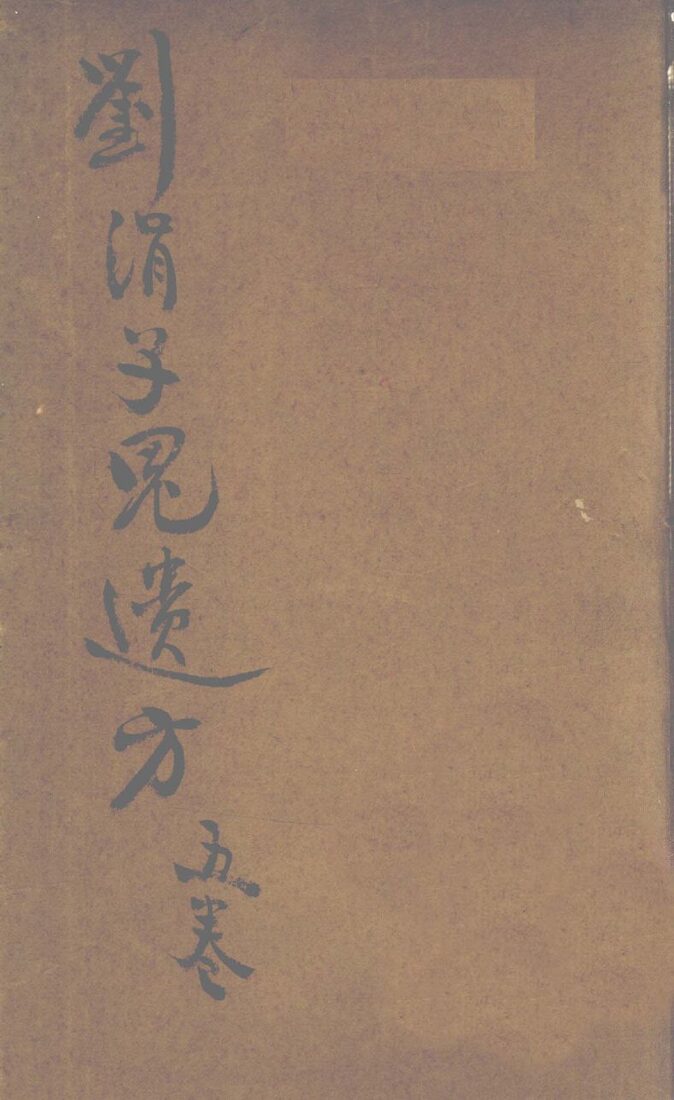 劉涓子鬼遺方
五卷